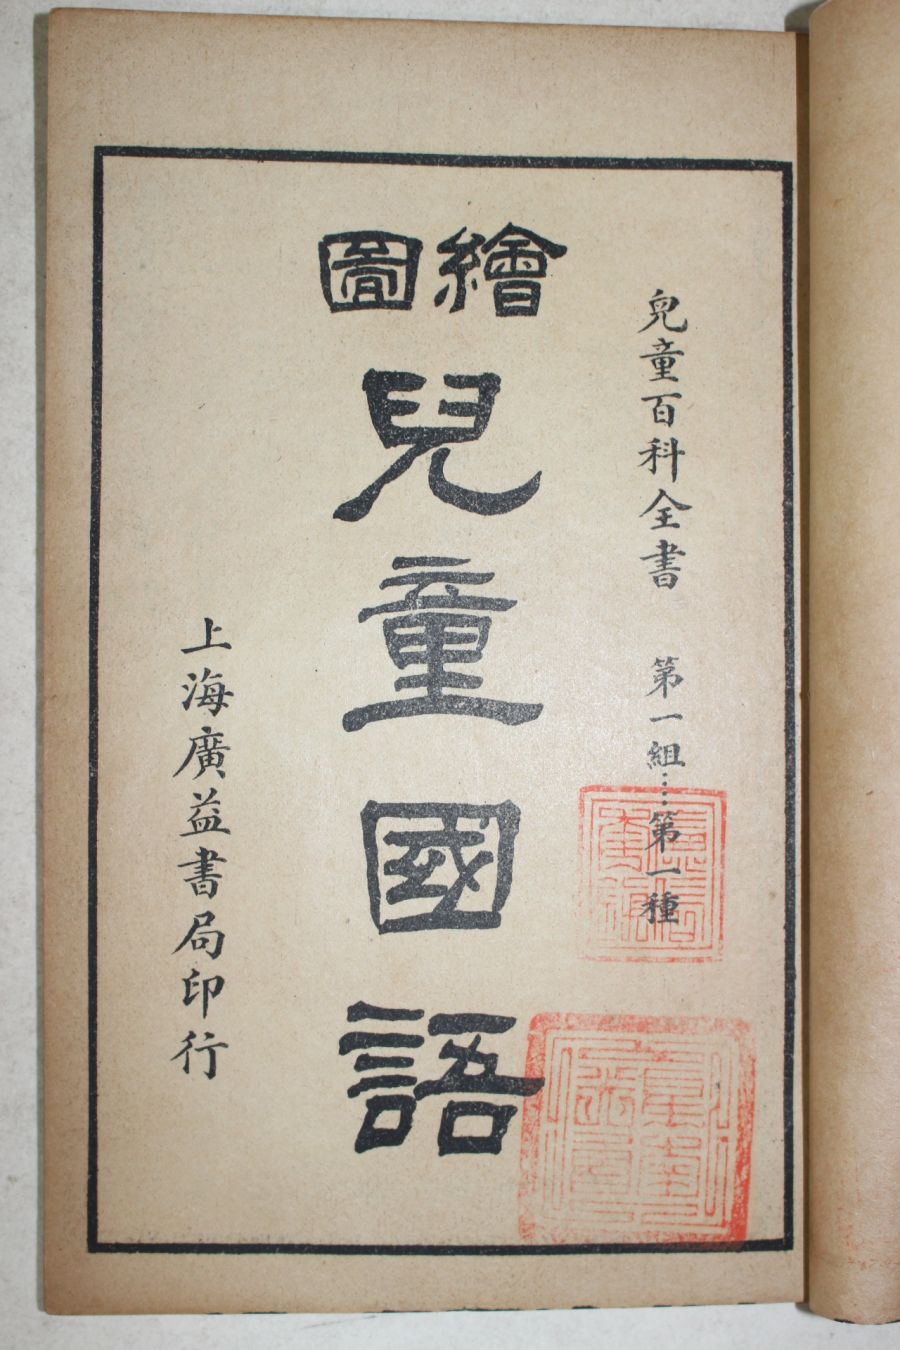 兒童百科全書 第一組……第一種
繪圖
兒童國語
上海廣益書局印行